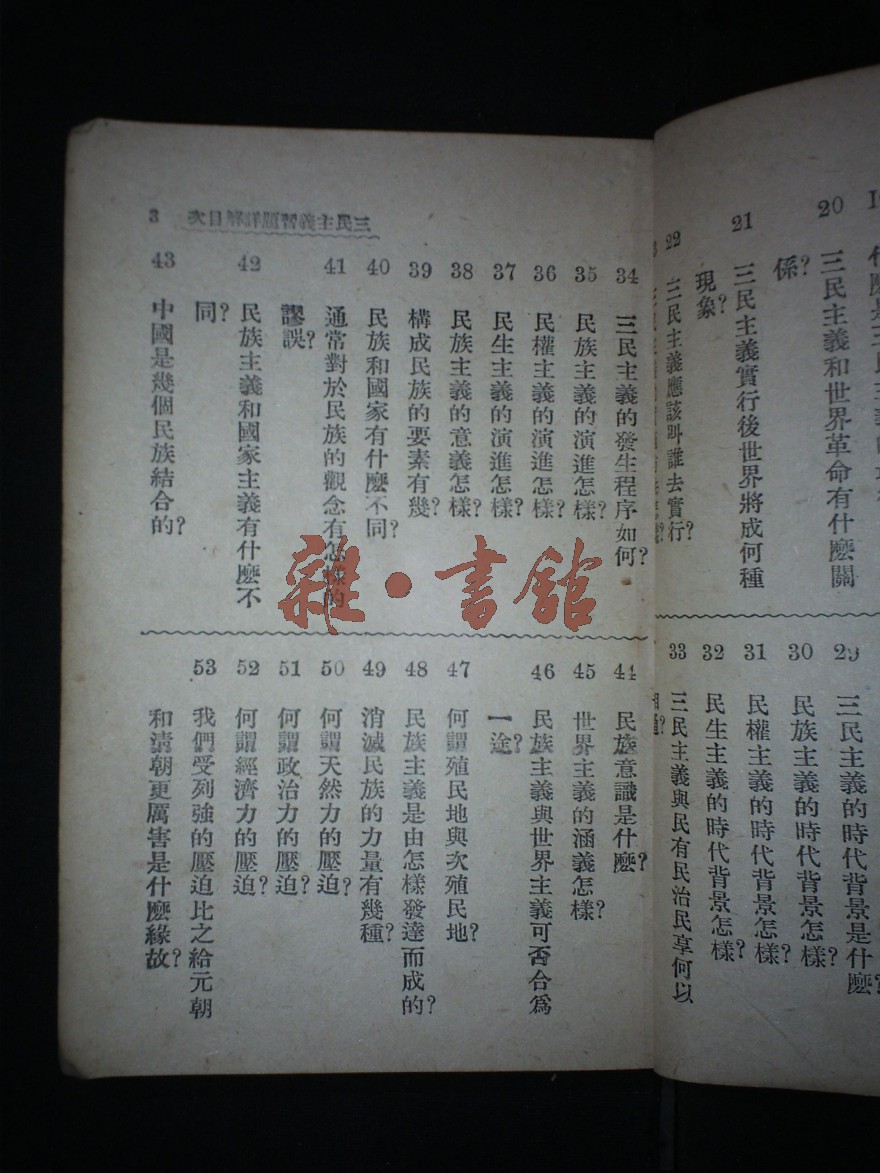 20 三民主義和世界革命有什麼關
係?
21 三民主義實行後世界將成何種
現象?
22 三民主義應該叫誰去實行?
29 三民主義的時代背景是什麼?
30 民族主義的時代背景怎樣?
31 民權主義的時代背景怎樣?
32 民生主義的時代背景怎樣?
33 三民主義與民有民治民享何以
相通?
三民主義習題詳解目次 3
34 三民主義的發生程序如何?
35 民族主義的演進怎樣?
36 民權主義的演進怎樣?
37 民生主義的演進怎樣?
38 民族主義的意義怎樣?
39 構成民族的要素有幾?
40 民族和國家有什麼不同?
41 通常對於民族的觀念有怎樣的
謬誤?
42 民族主義和國家主義有什麼不
同?
43 中國是幾個民族結合的?
44 民族意識是什麼?
45 世界主義的涵義怎樣?
46 民族主義與世界主義可否合爲
一途?
47 何謂殖民地與次殖民地?
48 民族主義是由怎樣發達而成的?
49 消滅民族的力量有幾種?
50 何謂天然力的壓迫?
51 何謂政治力的壓迫?
52 何謂經濟力的壓迫?
53 我們受列強的壓迫比之給元朝
和淸朝更厲害是什麼緣故?
雜·書館